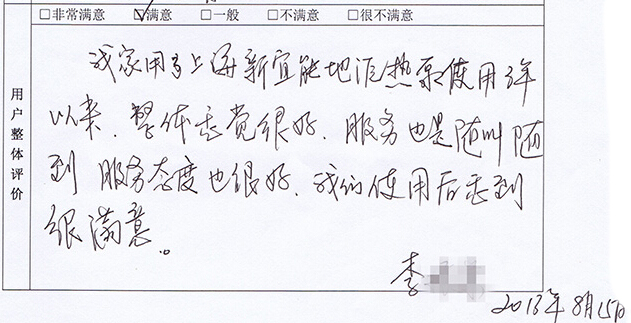 □非常满意 ☑满意 □一般 □不满意 □很不满意
用户整体评价
我家用了上海新宜能地源热泵使用3年
以来、整体感觉很好、服务也是随叫随
到 服务态度也很好、我们使用后感到
很满意。
李
2013年8月15日